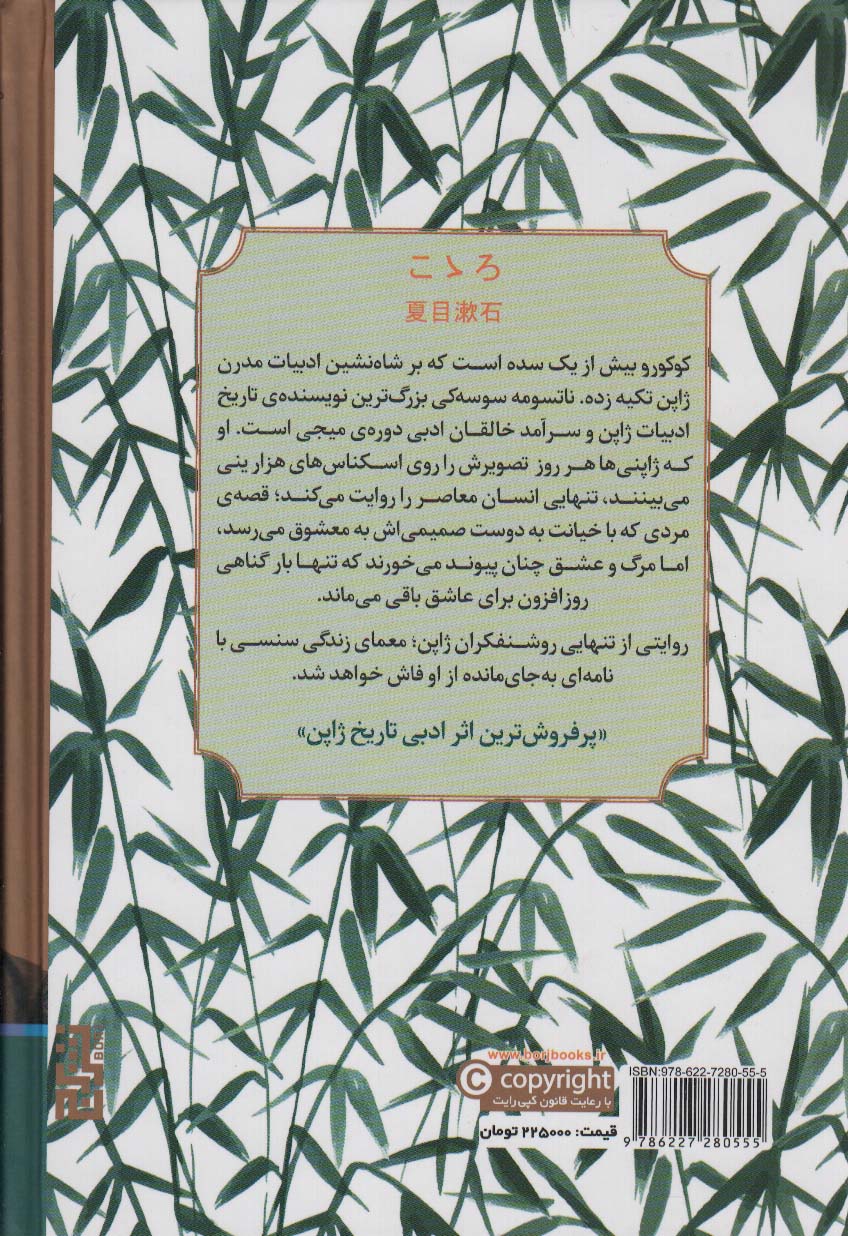 こゝろ
夏目漱石
کوکورو بیش از یک سده است که بر شاه‌نشین ادبیات مدرن
ژاپن تکیه زده. ناتسومه سوسه‌کی بزرگ‌ترین نویسنده‌ی تاریخ
ادبیات ژاپن و سرآمد خالقان ادبی دوره‌ی میجی است. او
که ژاپنی‌ها هر روز تصویرش را روی اسکناس‌های هزار ینی
می‌بینند، تنهایی انسان معاصر را روایت می‌کند؛ قصه‌ی
مردی که با خیانت به دوست صمیمی‌اش به معشوق می‌رسد،
اما مرگ و عشق چنان پیوند می‌خورند که تنها بار گناهی
روزافزون برای عاشق باقی می‌ماند.
روایتی از تنهایی روشنفکران ژاپن؛ معمای زندگی سنسی با
نامه‌ای به‌جای‌مانده از او فاش خواهد شد.
«پرفروش‌ترین اثر ادبی تاریخ ژاپن»
www.borjbooks.ir
© copyright
با رعایت قانون کپی‌رایت
قیمت: ۲۲۵۰۰۰ تومان
ISBN:978-622-7280-55-5
9 786227 280555